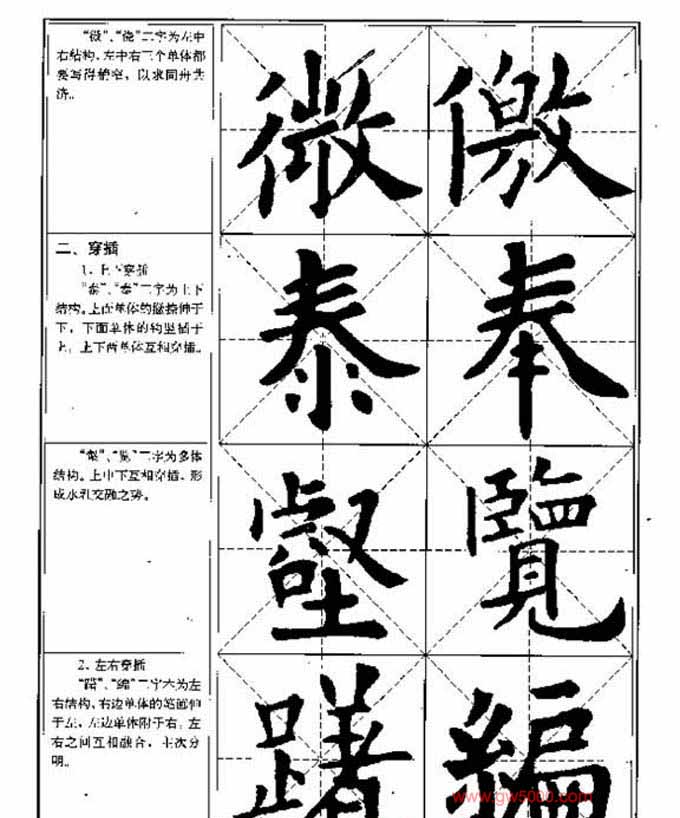 “微”、 二字为左中
右结构，左中右三个单体都
要写得梢窄，以求同舟共
济。
微
二、穿插
1、上下穿插
“泰”、“奉”二字为上下
结构。上面单体的撇捺伸于
下，下面单体的 竖插于
上，上下两单体互相穿插。
泰 奉
“壑”、“览”二字为多体
结构。上中下互相穿插，形
成水乳交融之势。
壑 覽
2、左右穿插
“躇”、“编”二字本为左
右结构，右边单体的笔画伸
于左，左边单体附于右，左
右之间互相融合，主次分
明。
躇 編
www.gw5000.com